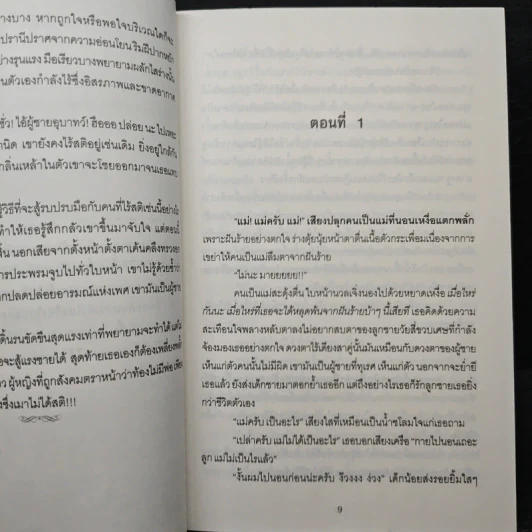 างบาง หากถูกใจหรือพอใจบริเวณใดก็จะ
ปรานีปราศจากความอ่อนโยน ริมฝีปากหนัก
างรุนแรง มือเรียวบางพยายามผลักไสร่างนั้น
นตัวเองกำลังไร้ซึ่งอิสรภาพและขาดอากาศ
ชั่ว! ไอ้ผู้ชายอุบาทว์! ฮือออ ปล่อย นะ ไป
นิด เขายังคงไร้สติอยู่เช่นเดิม ยิ่งอยู่ใกล้กัน
กลิ่นเหล้าในตัวเขาจะโชยออกมาจน
รู้วิธีที่จะสู้รบปรบมือกับคนที่ไร้สติเช่นนี้อย่าง
ทำให้เธอรู้สึกกลัวเขาขึ้นมาจับใจ
น นอกเสียจากตั้งหน้าตั้งตาเค้นคลึงทรวง
การประพรมจูบไปทั่วใบหน้า เขาไม่รู้ด้วยซ้ำว่า
กปลดปล่อยอารมณ์แห่งเพศ เขามันเป็นผู้ชาย
ดิ้นรนขัดขืนสุดแรงเท่าที่พยายามจะทำได้ แต่
อจะสู้แรงชายได้ สุดท้ายเธอเองก็ต้องเพลี่ยงพล้ำ
ว ผู้หญิงที่ถูกสังคมตราหน้าว่าท้องไม่มีพ่อ
ซึ่งเมาไม่ได้สติ!!!
ตอนที่ 1
"แม่! แม่ครับ แม่!" เสียงปลุกคนเป็นแม่ที่นอนเหงื่อแตกพลั่ก
เพราะฝันร้ายอย่างตกใจ ร่างตุ้ยนุ้ยหน้าตาตื่นเนื้อตัวกระเพื่อมเนื่องจากการ
เขย่าให้คนเป็นแม่ลืมตาจากฝันร้าย
"ไม่นะ มายยยยย!!"
คนเป็นแม่สะดุ้งตื่น ใบหน้านวลเจิ่งนองไปด้วยหยาดเหงื่อ เมื่อไหร่
กันนะ เมื่อไหร่ที่เธอจะได้หลุดพ้นจากฝันร้ายบ้าๆ นี่เสียที เธอคิดด้วยความ
สะเทือนใจพลางหลับตาลงไม่อยากสบตาของลูกชายวัยสี่ขวบเศษที่กำลัง
จ้องมองเธออย่างตกใจ ดวงตาไร้เดียงสาคู่นั้นมันเหมือนกับดวงตาของผู้ชาย
เห็นแก่ตัวคนนั้นไม่มีผิด เขามันเป็นผู้ชายที่ทุเรศ เห็นแก่ตัว นอกจากจะย่ำยี
เธอแล้ว ยังส่งเด็กชายมาตอกย้ำเธออีก แต่ถึงอย่างไรเธอก็รักลูกชายเธอยิ่ง
กว่าชีวิตตัวเอง
"แม่ครับ เป็นอะไร" เสียงใสที่เหมือนเป็นน้ำชโลมใจแก่เธอถาม
"เปล่าครับ แม่ไม่ได้เป็นอะไร" เธอบอกเสียงเครือ "กายไปนอนเถอะ
ลูก แม่ไม่เป็นไรแล้ว"
"งั้นผมไปนอนก่อนน่ะครับ ง๊วงงง ง่วง" เด็กน้อยส่งรอยยิ้มใสๆ
9